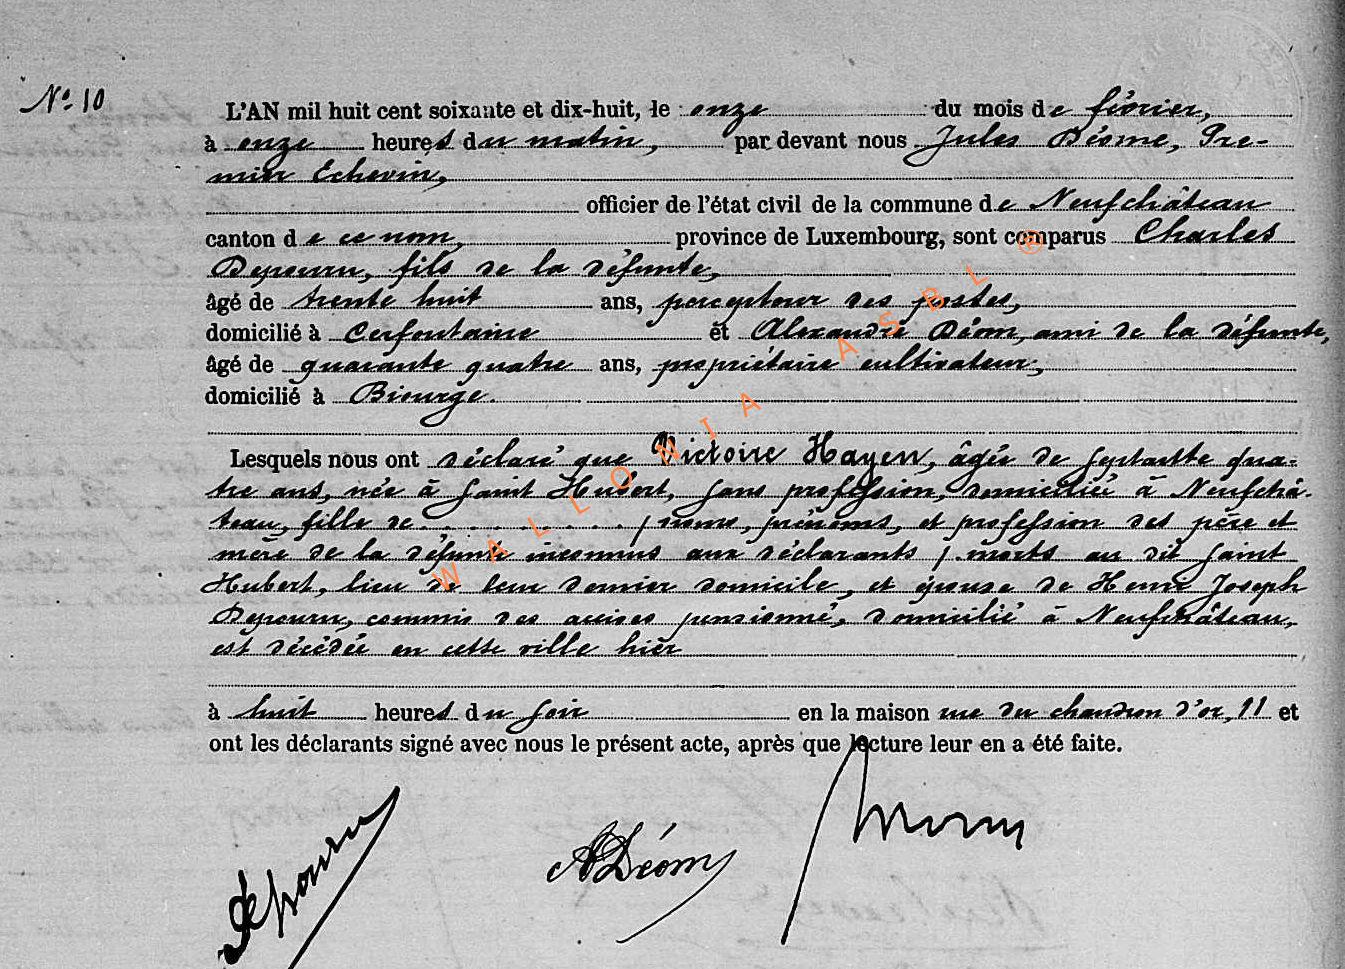 N° 10
L'AN mil huit cent soixante et dix-huit, le onze du mois de février,
à onze heures du matin, par devant nous Jules Déome, Pre-
mier Echevin,
officier de l'état civil de la commune de Neufchâteau
canton de ce nom, province de Luxembourg, sont comparus Charles
Depourn, fils de la défunte,
âgé de trente huit ans, percepteur des postes,
domicilié à Cerfontaine et Alexandre Déom, ami de la défunte,
âgé de quarante quatre ans, propriétaire cultivateur,
domicilié à Biourge.
Lesquels nous ont déclaré que Victoire Hayen, âgée de septante qua-
tre ans, née à Saint Hubert, sans profession, domiciliée à Neufchâ-
teau, fille de . . . . . . . . . . ( noms, prénoms, et profession des père et
mère de la défunte inconnus aux déclarants ) morts au dit Saint
Hubert, lieu de leur dernier domicile, et épouse de Henri Joseph
Depourn, commis des accises pensionné, domicilié à Neufchâteau,
est décédée en cette ville hier
à huit heures du soir en la maison rue du chaudron d'or, 11 et
ont les déclarants signé avec nous le présent acte, après que lecture leur en a été faite.
Depourn
ADéom
WALLONIA ASBL ®